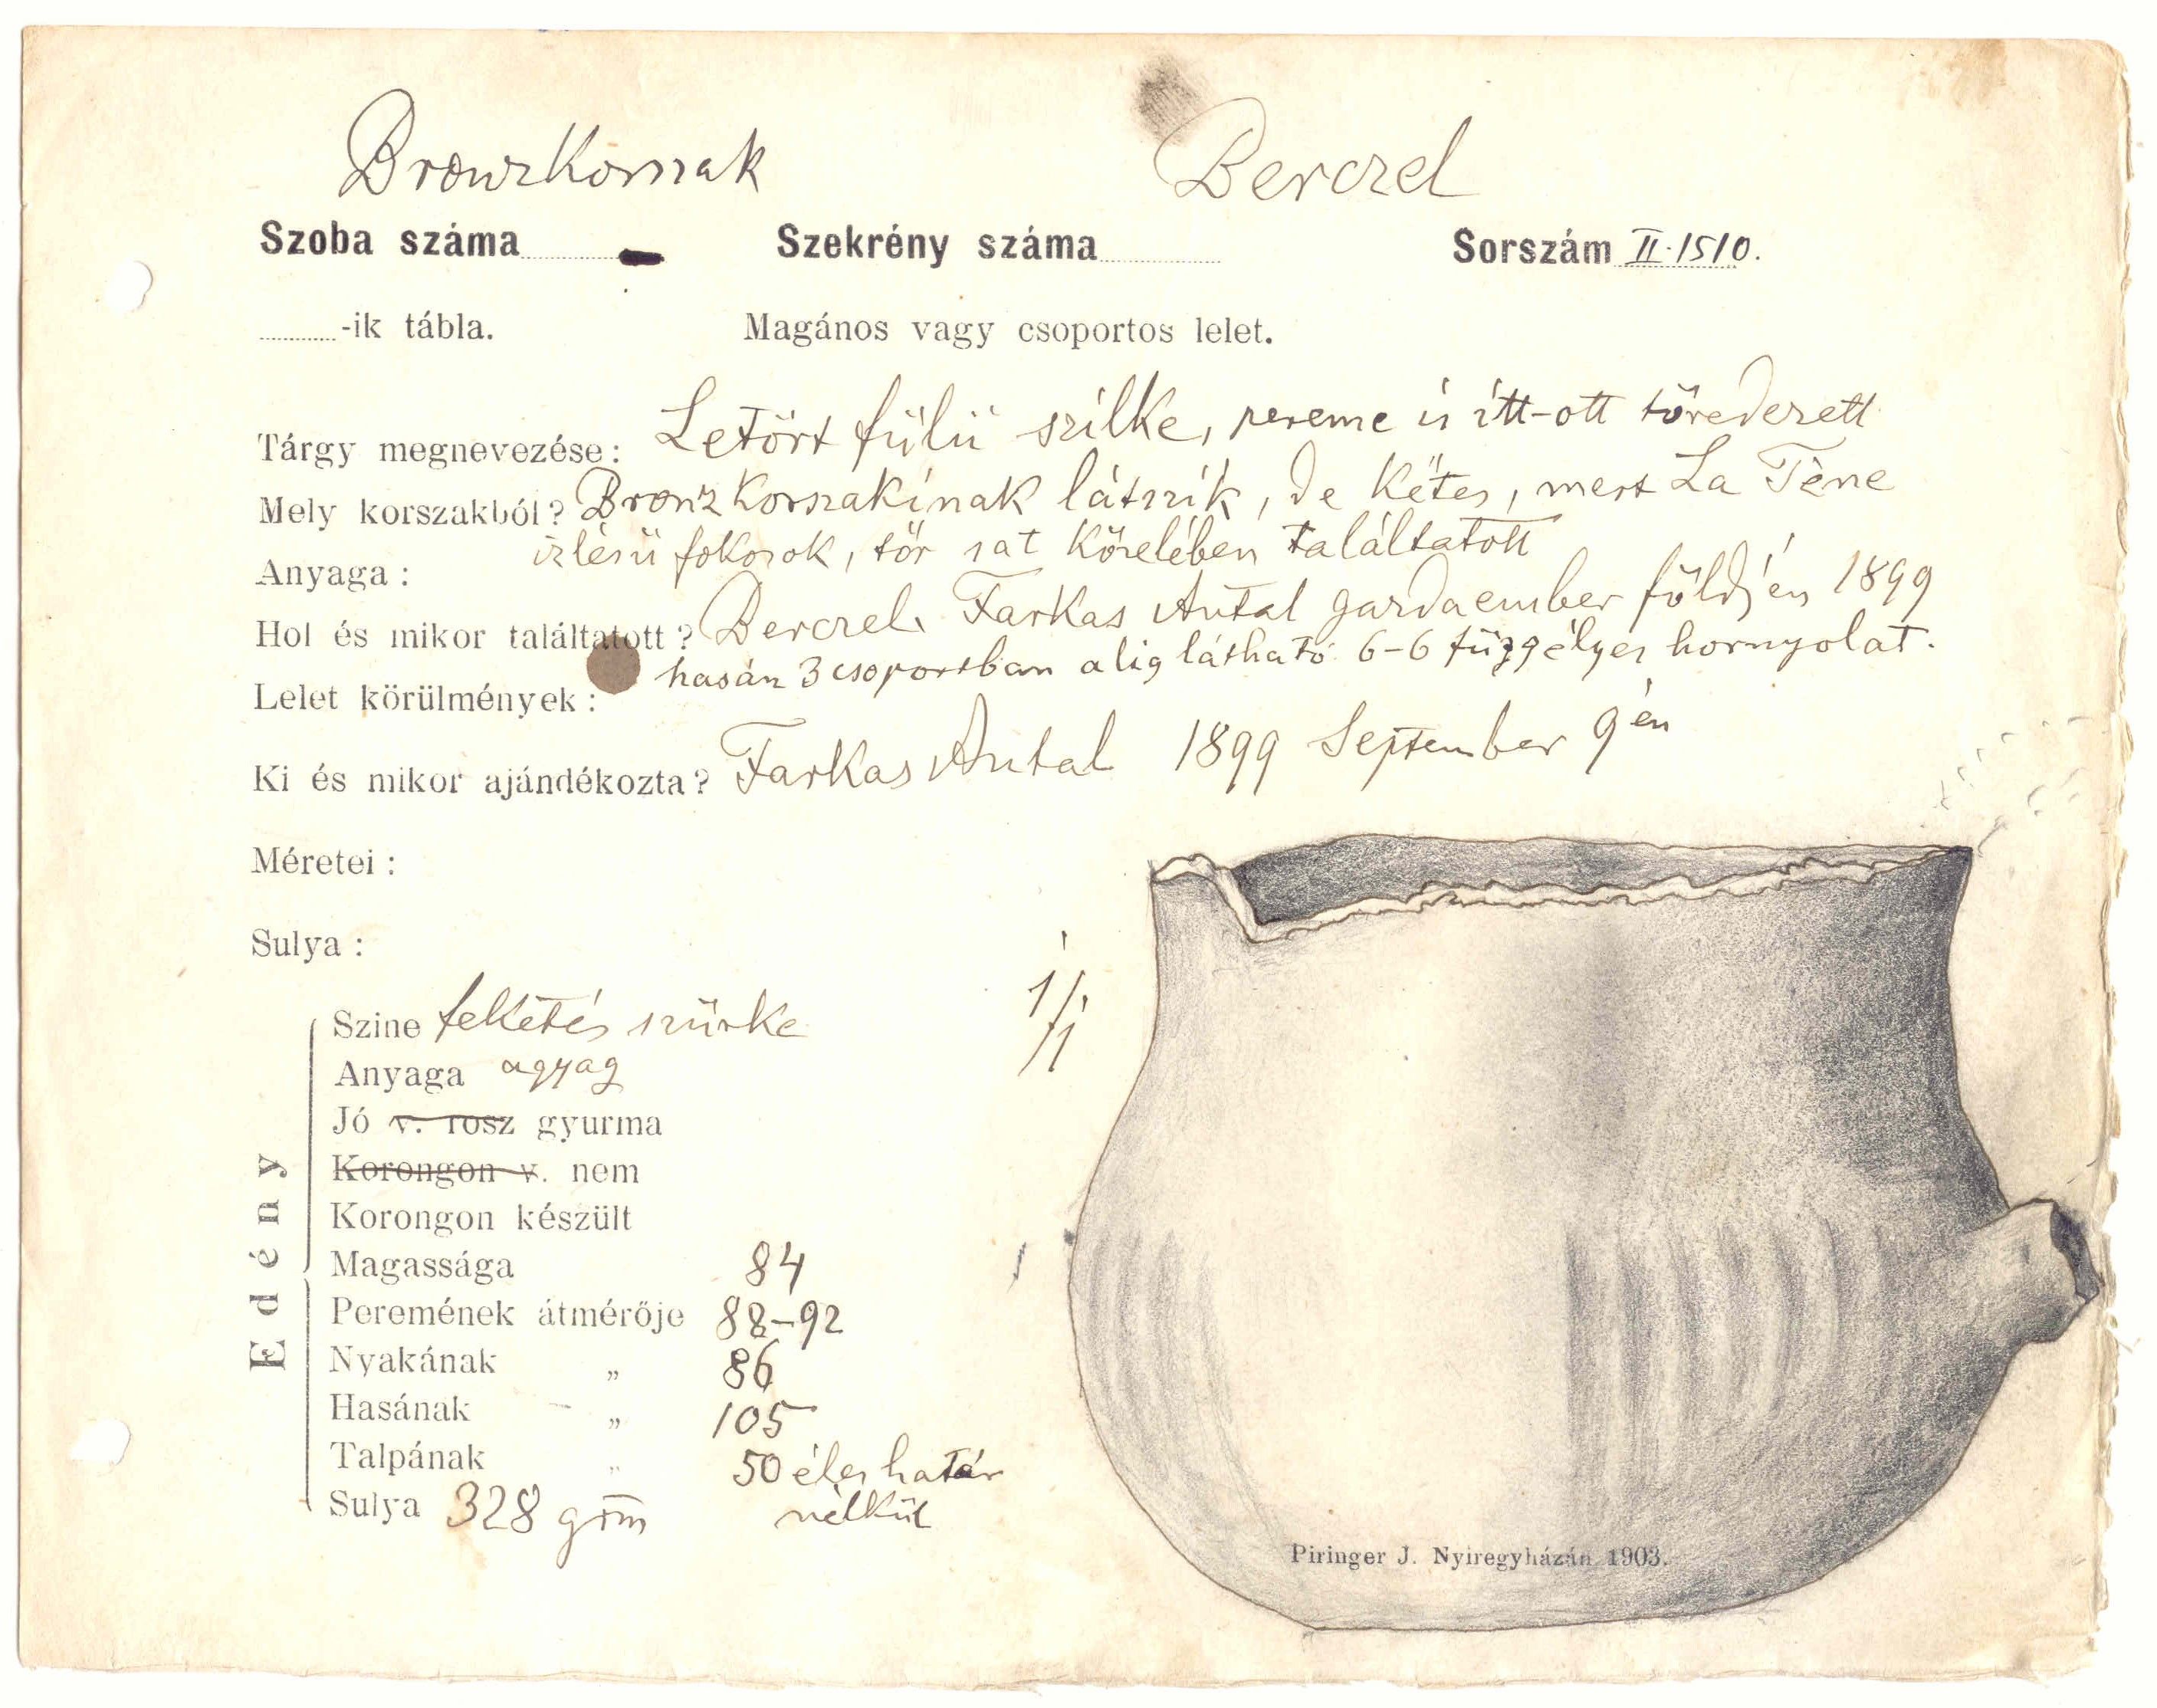 Bronzkorszak Berczel
Szoba száma Szekrény száma Sorszám II.1510.
-ik tábla. Magános vagy csoportos lelet.
Tárgy megnevezése: Letört fülü szilke, pereme is itt-ott töredezett
Mely korszakból? Bronzkorszakinak látszik, de kétes, mert La Tène
izlésü fokosok, tőr sat közelében találtatott
Anyaga:
Hol és mikor találtatott? Berczel. Farkas Antal gazdaember földjén 1899
hasán 3 csoportban alig látható 6-6 függélyes hornyolat.
Lelet körülmények:
Ki és mikor ajándékozta? Farkas Antal 1899 September 9én
Méretei:
Sulya:
1/1
Edény
Szine feketés szürke
Anyaga agyag
Jó v. rosz gyurma
Korongon v. nem
Korongon készült
Magassága 84
Peremének átmérője 88-92
Nyakának „ 86
Hasának „ 105
Talpának „ 50 éles határ
nélkül
Sulya 328 grm
Piringer J. Nyiregyházán 1903.